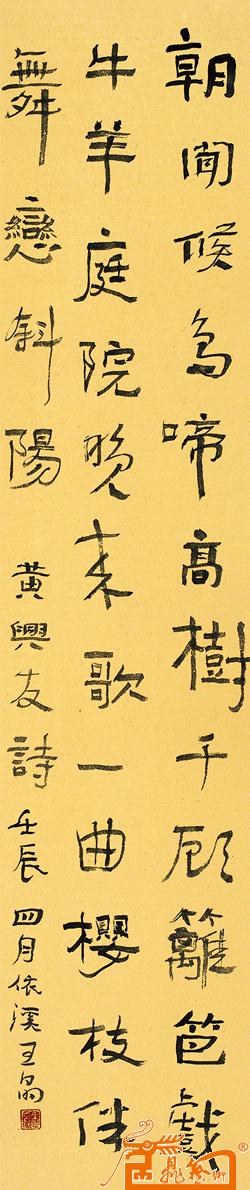 朝聞候鳥啼高樹千顧籬笆戲
牛羊庭院晚來歌一曲櫻枝伴
舞戀斜陽 黃興友詩 壬辰四月依溪王翕